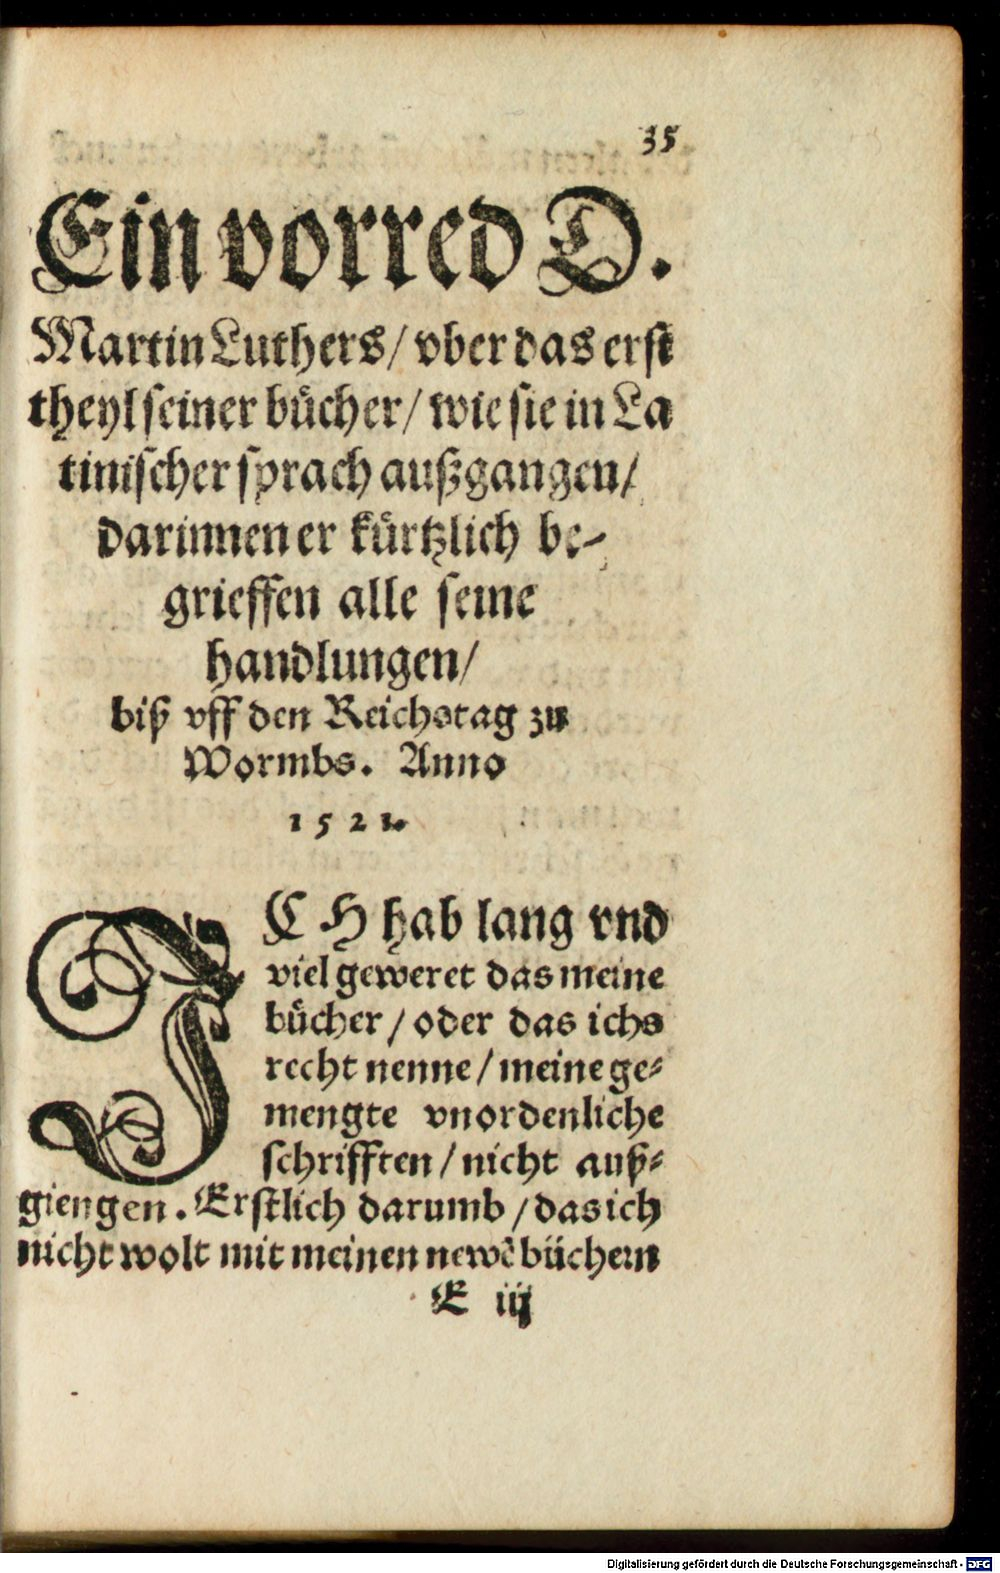 35
Ein vorred D.
Martin Luthers/ vber das erst
theyl seiner bücher/ wie sie in La
tinischer sprach außgangen/
darinnen er kürtzlich be-
grieffen alle seine
handlungen/
biß vff den Reichstag zu
Wormbs. Anno
1521.
ICH hab lang vnd
viel geweret das meine
bücher/ oder das ichs
recht nenne/ meine ge-
mengte vnordenliche
schrifften/ nicht auß-
giengen. Erstlich darumb/ das ich
nicht wolt mit meinen newẽ büchern
E iij
Digitalisierung gefördert durch die Deutsche Forschungsgemeinschaft - DFG